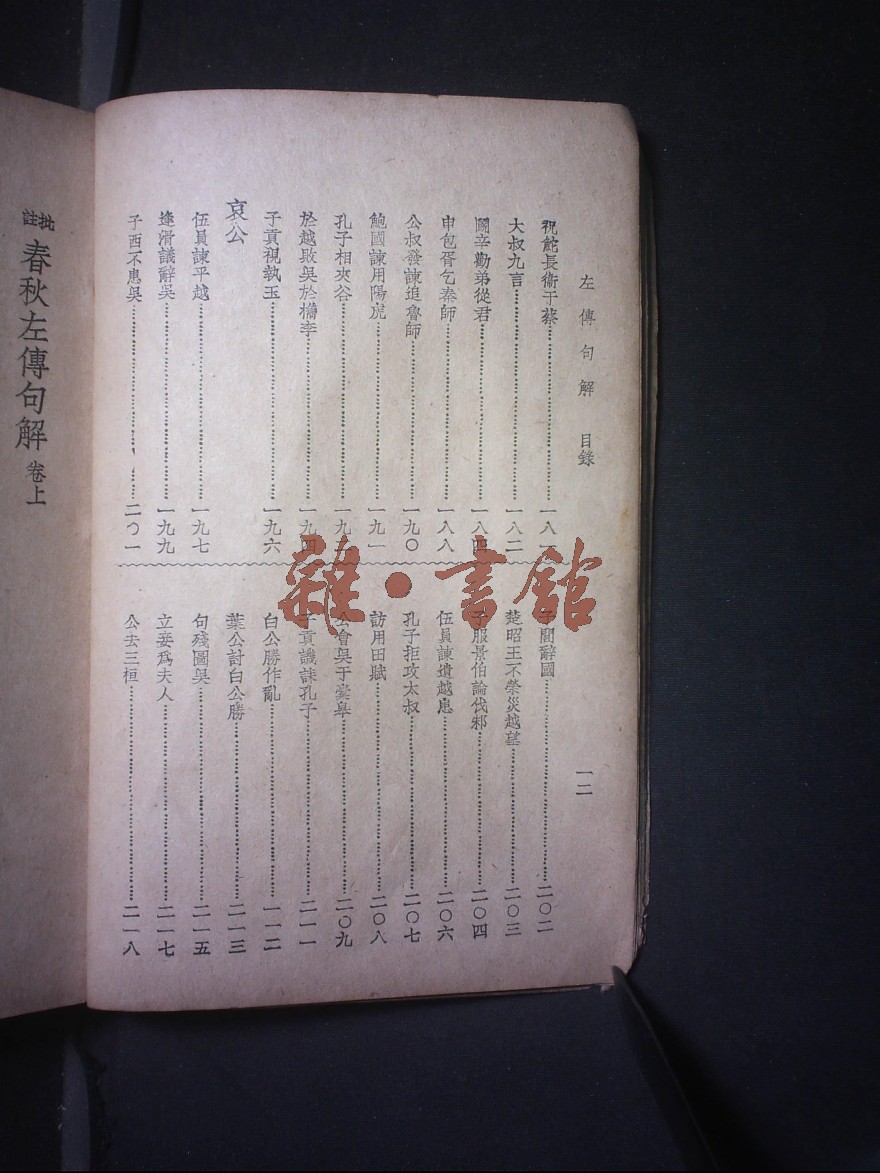 左傳句解 目錄 一二
祝鮀長衞于蔡……一八一
大叔九言……一八二
鬭辛勸弟從君……一八四
申包胥乞秦師……一八八
公叔發諫追魯師……一九〇
鮑國諫用陽虎……一九一
孔子相夾谷……一九二
於越敗吳於檇李……一九四
子貢視執玉……一九六
哀公
伍員諫平越……一九七
逢滑議辭吳……一九九
子西不患吳……二〇一
子閭辭國……二〇二
楚昭王不禜災越望……二〇三
子服景伯論伐邾……二〇四
伍員諫遺越患……二〇六
孔子拒攻太叔……二〇七
訪用田賦……二〇八
公會吳于橐皋……二〇九
子貢譏誄孔子……二一一
白公勝作亂……一一二
葉公討白公勝……二一三
句殘圖吳……二一五
立妾爲夫人……二一七
公去三桓……二一八
批註 春秋左傳句解 卷上
雜·書館